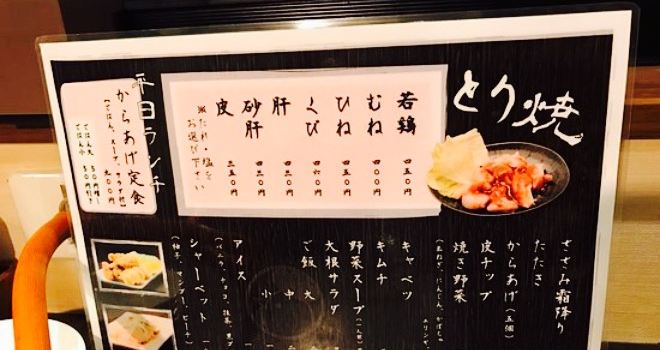 とり焼
若鶏 四五〇円
むね 四〇〇円
ひね 四五〇円
くび 四六〇円
肝 四二〇円
砂肝 四二〇円
皮 三五〇円
※たれ・塩を
お選び下さい
平日ランチ
からあげ定食
(ごはん、スープ、サラダ付)
ごはん大
ごはん小
ささみ霜降り
たたき
からあげ(五個)
皮チップ
焼き野菜
(玉ねぎ、にんじん、かぼちゃ
キャベツ
キムチ
野菜スープ(一人前)
大根サラダ
ご飯 大
中
小
アイス
(バニラ、チョコ、抹茶、
シャーベット
(柚子、マンゴー、ピーチ)